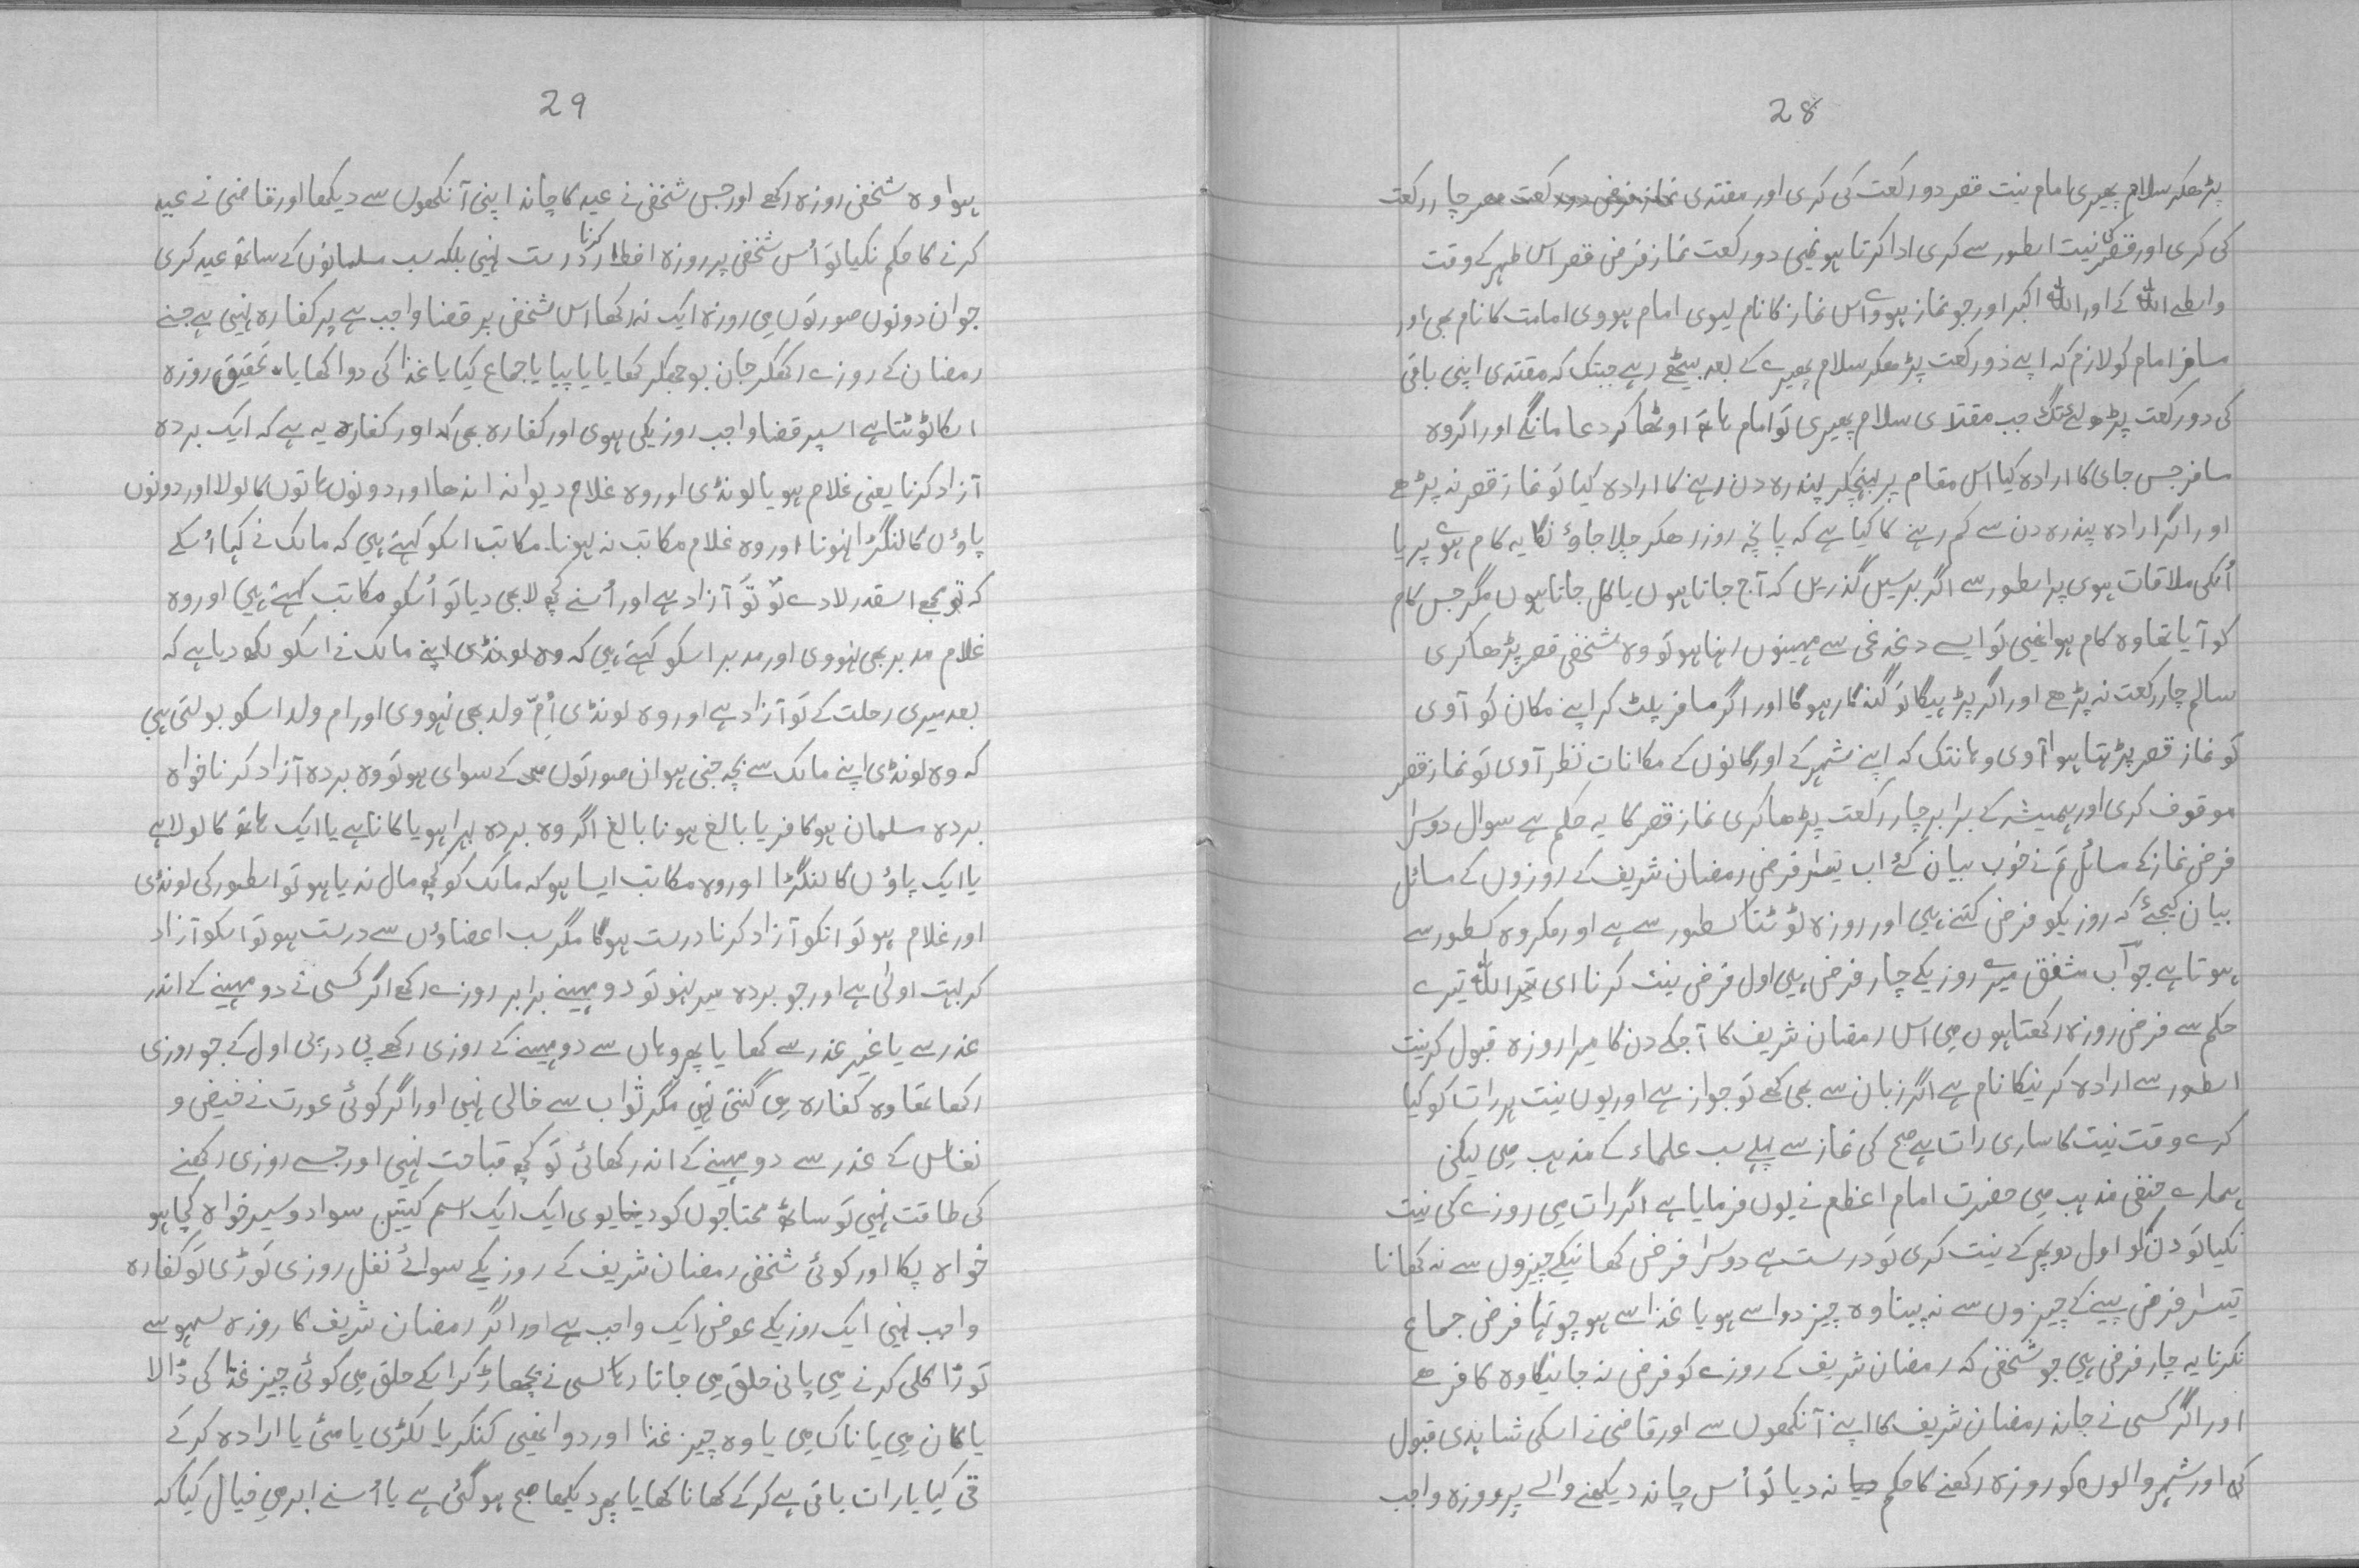 28
پڑھکر سلام پھیری امام نیت قصر دو رکعت کی کری اور مقتدی نماز فرض دو رکعت قصر چار رکعت
کی کری اور قصر کی نیت اسطور سے کری ادا کرتا ہو نمیں دو رکعت نماز فرض قصر اس ظہر کے وقت
واسطے اللہ کے اور اللہ اکبر اور جو نماز ہووے اس نماز کا نام لیوی امام ہووی امامت کا نام بھی اور
مسافر امام کو لازم کہ اپنے دو رکعت پڑھکر سلام پھیرے کے بعد بیٹھے رہے جبتک کہ مقتدی اپنی باقی
کی دو رکعت پڑھ لئے تگ جب مقتدی سلام پھیری تو امام ہاتھ اوٹھا کر دعا مانگے اور اگر وہ
مسافر جس جای کا ارادہ کیا اس مقام پر پہنچکر پندرہ دن رہنے کا ارادہ کیا تو نماز قصر نہ پڑھے
اور اگر ارادہ پندرہ دن سے کم رہنے کا کیا ہے کہ پانچہ روز رھکر چلا جاؤنگا یہ کام ہوے پر یا
اُنکی ملاقات ہوی پر اسطور سے اگر برسیں گذریں کہ آج جاتا ہوں یا کل جاتا ہوں مگر جس کام
کو آیا تھا وہ کام ہوا نہیں تو ایسے دغدغی سے مہینوں رہنا ہو تو وہ شخص قصر پڑھا کری
سالم چار رکعت نہ پڑھے اور اگر پڑہیگا تو گنہگار ہوگا اور اگر مسافر پلٹ کر اپنے مکان کو آوی
تو نماز قصر پڑہتا ہوا آوی وہانتک کہ اپنے شہر کے اور گانوں کے مکانات نظر آوی تو نماز قصر
موقوف کری اور ہمیشہ کے برابر چار رکعت پڑھا کری نماز قصر کا یہ حکم ہے سوال دوسرا
فرض نماز کے مسائل تم نے خوب بیان کئے اب تیسرا فرض رمضان شریف کے روزوں کے مسائل
بیان کیجئے کہ روزیکو فرض کتنے ہیں اور روزہ ٹوٹنا کسطور سے ہے اور مکروہ کسطور سے
ہوتا ہے جواب مشفق میرے روزیکے چار فرض ہیں اول فرض نیت کرنا ای اللہ تیرے
حکم سے فرض روزہ رکھتا ہوں میں اس رمضان شریف کا آجکے دن کا میرا روزہ قبول کر نیت
اسطور سے ارادہ کرنیکا نام ہے اگر زبان سے بھی کہے تو جواز ہے اور یوں نیت ہر رات کو کیا
کرے وقت نیت کا ساری رات ہے صبح کی نماز سے پہلے سب علماء کے مذہب میں لیکن
ہمارے حنفی مذہب میں حضرت امام اعظم نے یوں فرمایا ہے اگر رات میں روزے کی نیت
نکیا تو دن کو اول دوپہر کے نیت کری تو درست ہے دوسرا فرض کھانیکے چیزوں سے نہ کھانا
تیسرا فرض پینے کے چیزوں سے نہ پینا وہ چیز دوا سے ہو یا غذا سے ہو چوتہا فرض جماع
نکرنا یہ چار فرض ہیں جو شخص کہ رمضان شریف کے روزے کو فرض نہ جانیگا وہ کافر ھے
اور اگر کسی نے چاند رمضان شریف کا اپنے آنکھوں سے اور قاضی نے اسکی شاہدی قبول
کی اور شہر والوں کو روزہ رکھنے کا حکم نہ دیا تو اُس چاند دیکھنے والے پر روزہ واجب
29
ہوا وہ شخص روزہ رکھے اور جس شخص نے عید کا چاند اپنی آنکھوں سے دیکھا اور قاضی نے عید
کرنے کا حکم نکیا تو اُس شخص پر روزہ افطار کرنا درست نہیں بلکہ سب مسلمانوں کے ساتھ عید کری
جو ان دونوں صورتوں میں روزہ ایک نہ رکھا اس شخص پر قضا واجب ہے پر کفارہ نہیں ہے جنے
رمضان کے روزے رکھکر جان بوجھکر کھایا یا پیا یا جماع کیا یا غذا کی دوا کھایا۔ تحقیق روزہ
اسکا ٹوٹتا ہے اسپر قضا واجب روزیکی ہوی اور کفارہ بھی کہ اور کفارہ یہ ہے کہ ایک بردہ
آزاد کرنا یعنی غلام ہو یا لونڈی اور وہ غلام دیوانہ اندھا اور دونوں ہاتوں کا لولا اور دونوں
پاؤں کا لنگڑا نہونا اور وہ غلام مکاتب نہ ہونا۔ مکاتب اسکو کہتے ہیں کہ مالک نے کہا اُسکے
کہ تو مجھے اسقدر لا دے تو تو آزاد ہے اور اُسنے کچھ لا بھی دیا تو اُسکو مکاتب کہتے ہیں اور وہ
غلام مدبر بھی نہووی اور مدبر اسکو کہتے ہیں کہ وہ لونڈی اپنے مالک نے اسکو لکھ دیا ہے کہ
بعد میری رحلت کے تو آزاد ہے اور وہ لونڈی اُمّ ولد بھی نہووی اور ام ولد اسکو بولتی ہیں
کہ وہ لونڈی اپنے مالک سے بچہ جنی ہو ان صورتوں میں کے سوای ہو تو وہ بردہ آزاد کرنا خواہ
بردہ مسلمان ہو کافر یا بالغ ہو نا بالغ اگر وہ بردہ بہرا ہو یا کانا ہے یا ایک ہاتھ کا لولا ہے
یا ایک پاؤں کا لنگڑا اور وہ مکاتب ایسا ہو کہ مالک کو کچھ مال نہ یا ہو تو اسطور کی لونڈی
اور غلام ہو تو انکو آزاد کرنا درست ہوگا مگر سب اعضاؤں سے درست ہو تو اسکو آزاد
کر بہت اولیٰ ہے اور جو بردہ میسر نہو تو دو مہینے برابر روزے رکھے اگر کسی نے دو مہینے کے اندر
عذر سے یا غیر عذر سے کھایا پھر وہاں سے دو مہینے کے روزی رکھے پی در پی اول کے جو روزی
رکھا تھا وہ کفارہ میں گنتی نہیں مگر ثواب سے خالی نہیں اور اگر کوئی عورت نے حیض و
نفاس کے عذر سے دو مہینے کے اندر کھائی تو کچھ قباحت نہیں اور جسے روزی رکھنے
کی طاقت نہیں تو ساٹھ محتاجوں کو دیوی ایک ایک اسم کیتیں سوا دو سیر خواہ کچا ہو
خواہ پکا اور کوئی شخص رمضان شریف کے روزیکے سوائے نفل روزی توڑی تو کفارہ
واجب نہیں ایک روزیکے عوض ایک واجب ہے اور اگر رمضان شریف کا روزہ سہو سے
توڑا کلی کرنے میں پانی حلق میں جاتا رہا کسی نے پچھاڑ کر اسکے حلق میں کوئی چیز غذا کی ڈالا
یا کان میں یا ناک میں یا وہ چیز غذا اور دوا نہیں کنکر یا لکڑی یا مٹی یا ارادہ کر کے
قی کیا یا رات باقی ہے کر کے کھانا کھایا پھر دیکھا صبح ہو گئی ہے یا اُسنے ابر میں خیال کیا کہ